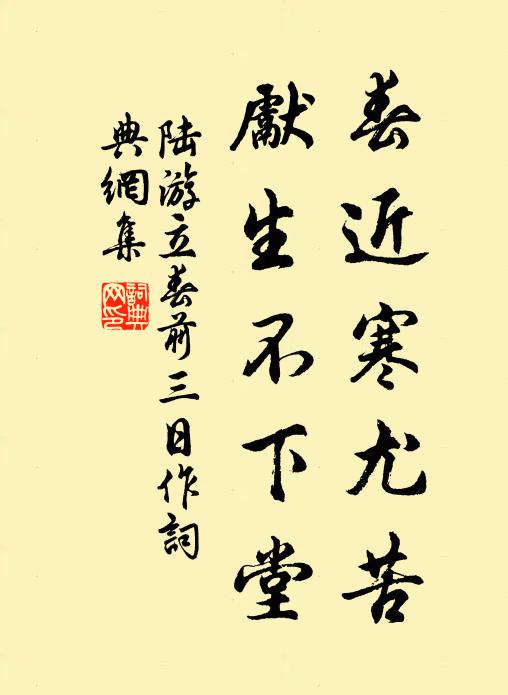 春近寒尤苦
獻生不下堂
陸游立春前三日作詞
典網集
詞典网印